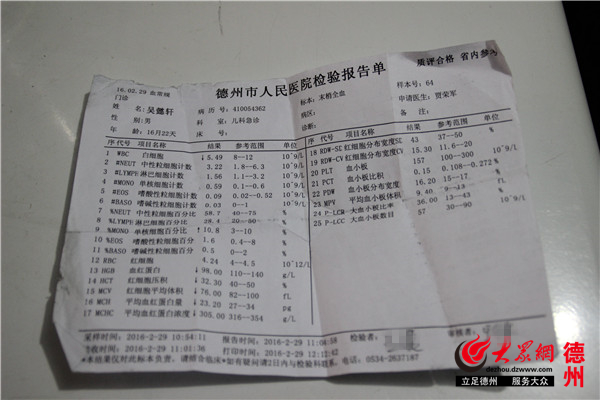 16.02.29 血常规
德州市人民医院检验报告单
质评合格 省内参考
门诊
姓名: 吴懿轩
病历号: 410054362
标本: 末梢全血
样本号: 64
性别: 男
科室: 儿科急诊
病区:
申请医生: 贾荣军
年龄: 16月22天
床号:
诊断:
备注:
代号 项目 结果 参考范围 单位
1 WBC 白细胞 ↓ 5.49 8--12 10^9/L
2 #NEUT 中性粒细胞计数 3.22 1.8--6.3 10^9/L
3 #LYMPH 淋巴细胞计数 1.56 1.1--3.2 10^9/L
4 #MONO 单核细胞计数 0.59 0.1--0.6 10^9/L
5 #EOS 嗜酸性粒细胞计数 0.09 0.02--0.52 10^9/L
6 #BASO 嗜碱性粒细胞计数 0.03 0--1 10^9/L
7 %NEUT 中性粒细胞百分比 58.7 40--75 %
8 %LYMPH 淋巴细胞百分比 28.4 20--50 %
9 %MONO 单核细胞百分比 ↑ 10.8 3--10 %
10 %EOS 嗜酸性粒细胞百分比 1.6 0.4--8 %
11 %BASO 嗜碱性粒细胞百分比 0.5 0--2 %
12 RBC 红细胞 4.24 4--4.5 10^12/L
13 HGB 血红蛋白 ↓ 98.00 110--140 g/L
14 HCT 红细胞压积 ↓ 32.30 40--50 %
15 MCV 红细胞平均体积 ↓ 76.00 82--100 fL
16 MCH 平均血红蛋白量 ↓ 23.20 27--34 pg
17 MCHC 平均血红蛋白浓度 ↓ 305.00 316--354 g/L
代号 项目 结果 参考范围 单位
18 RDW-SD 红细胞分布宽度SD 43 37--50 %
19 RDW-CV 红细胞分布宽度CV 15.30 11.6--20 %
20 PLT 血小板 157 100--300 10^9/L
21 PCT 血小板比积 0.15 0.108--0.272 %
22 PDW 血小板分布宽度 16.20 15--17 %
23 MPV 平均血小板体积 9.40 fL
24 P-LCR 大血小板比率 26.00 13--43 %
25 P-LCC 大血小板数目 57 30--90 10^9/L
采样时间: 2016-2-29 10:54:11
报告时间: 2016-2-29 11:04:58
检验者:
审核者:
接收时间: 2016-2-29 11:01:36
打印时间: 2016-2-29 12:12:42
*本结果仅对此标本负责, 请结合临床*如有疑问请2日内与检验科联系, 电话: 0534-2637167
大众网 德州
dezhou.dzwww.com
立足德州 服务大众